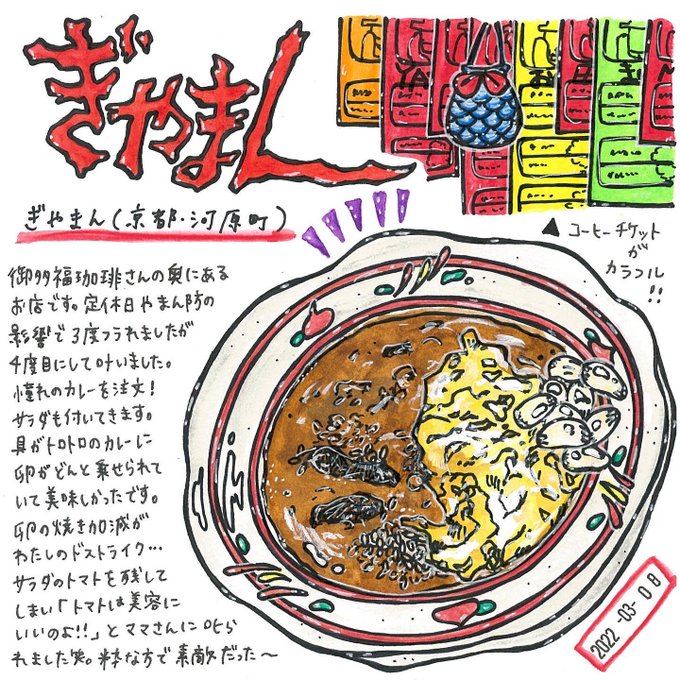 ぎやまん
ぎやまん(京都・河原町)
▲ コーヒーチケット
が
カラフル
!!
御多福珈琲さんの奥にある
お店です。定休日やまん防の
影響で3度フラれましたが
4度目にして叶いました。
憧れのカレーを注文!
サラダも付いてきます。
具がトロトロのカレーに
卵がどんと乗せられて
いて美味しかったです。
卵の焼き加減が
わたしのドストライク…
サラダのトマトを残して
しまい「トマトは美容に
いいのよ!!」とママさんに叱ら
れました笑。粋な方で素敵だった〜
2022-03-08